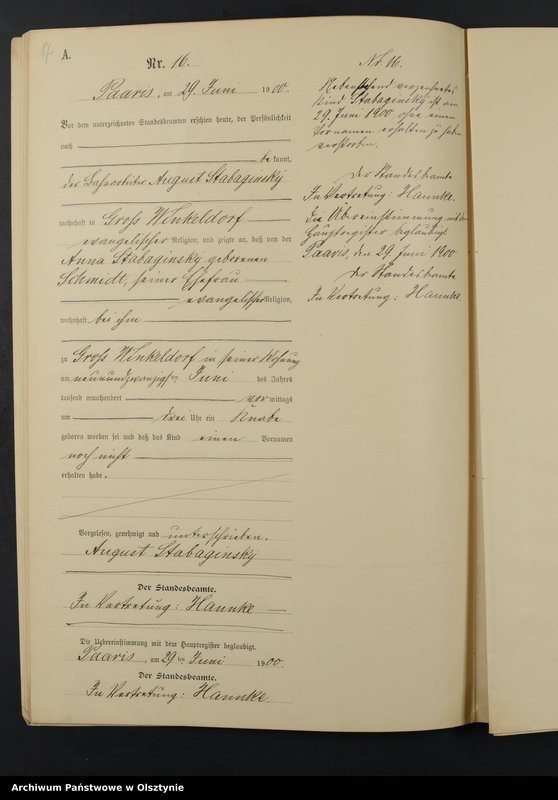 17
A.
Nr. 16.
Paaris, am 29. Juni 1900.
Vor dem unterzeichneten Standesbeamten erschien heute, der Persönlichkeit
nach
be kannt,
der August Stabaginsky
wohnhaft in Groß Winkeldorf
evangelischer Religion, und zeigte an, daß von der
Anna Stabaginsky geborenen
Schmidt, seiner Ehefrau
evangelischer Religion,
wohnhaft bei ihm
zu Groß Winkeldorf in seiner Wohnung
am neunundzwanzigsten Juni des Jahres
tausend neunhundert vor mittags
um drei Uhr ein Knabe
geboren worden sei und daß das Kind einen Vornamen
noch nicht
erhalten habe.
Vorgelesen, genehmigt und unterschrieben.
August Stabaginsky
Der Standesbeamte.
In Vertretung: Hannke
Die Uebereinstimmung mit dem Hauptregister beglaubigt.
Paaris, am 29 ten Juni 1900.
Der Standesbeamte.
In Vertretung: Hannke.
No 16.
Nebenstehend verzeichnetes
Kind Stabaginsky ist am
29. Juni 1900 ohne einen
Vornamen erhalten zu haben
verstorben.
Der Standesbeamte
In Vertretung: Hannke.
Die Übereinstimmung mit dem
Hauptregister beglaubigt
Paaris, den 29. Juni 1900
Der Standesbeamte
In Vertretung: Hannke
Archiwum Państwowe w Olsztynie